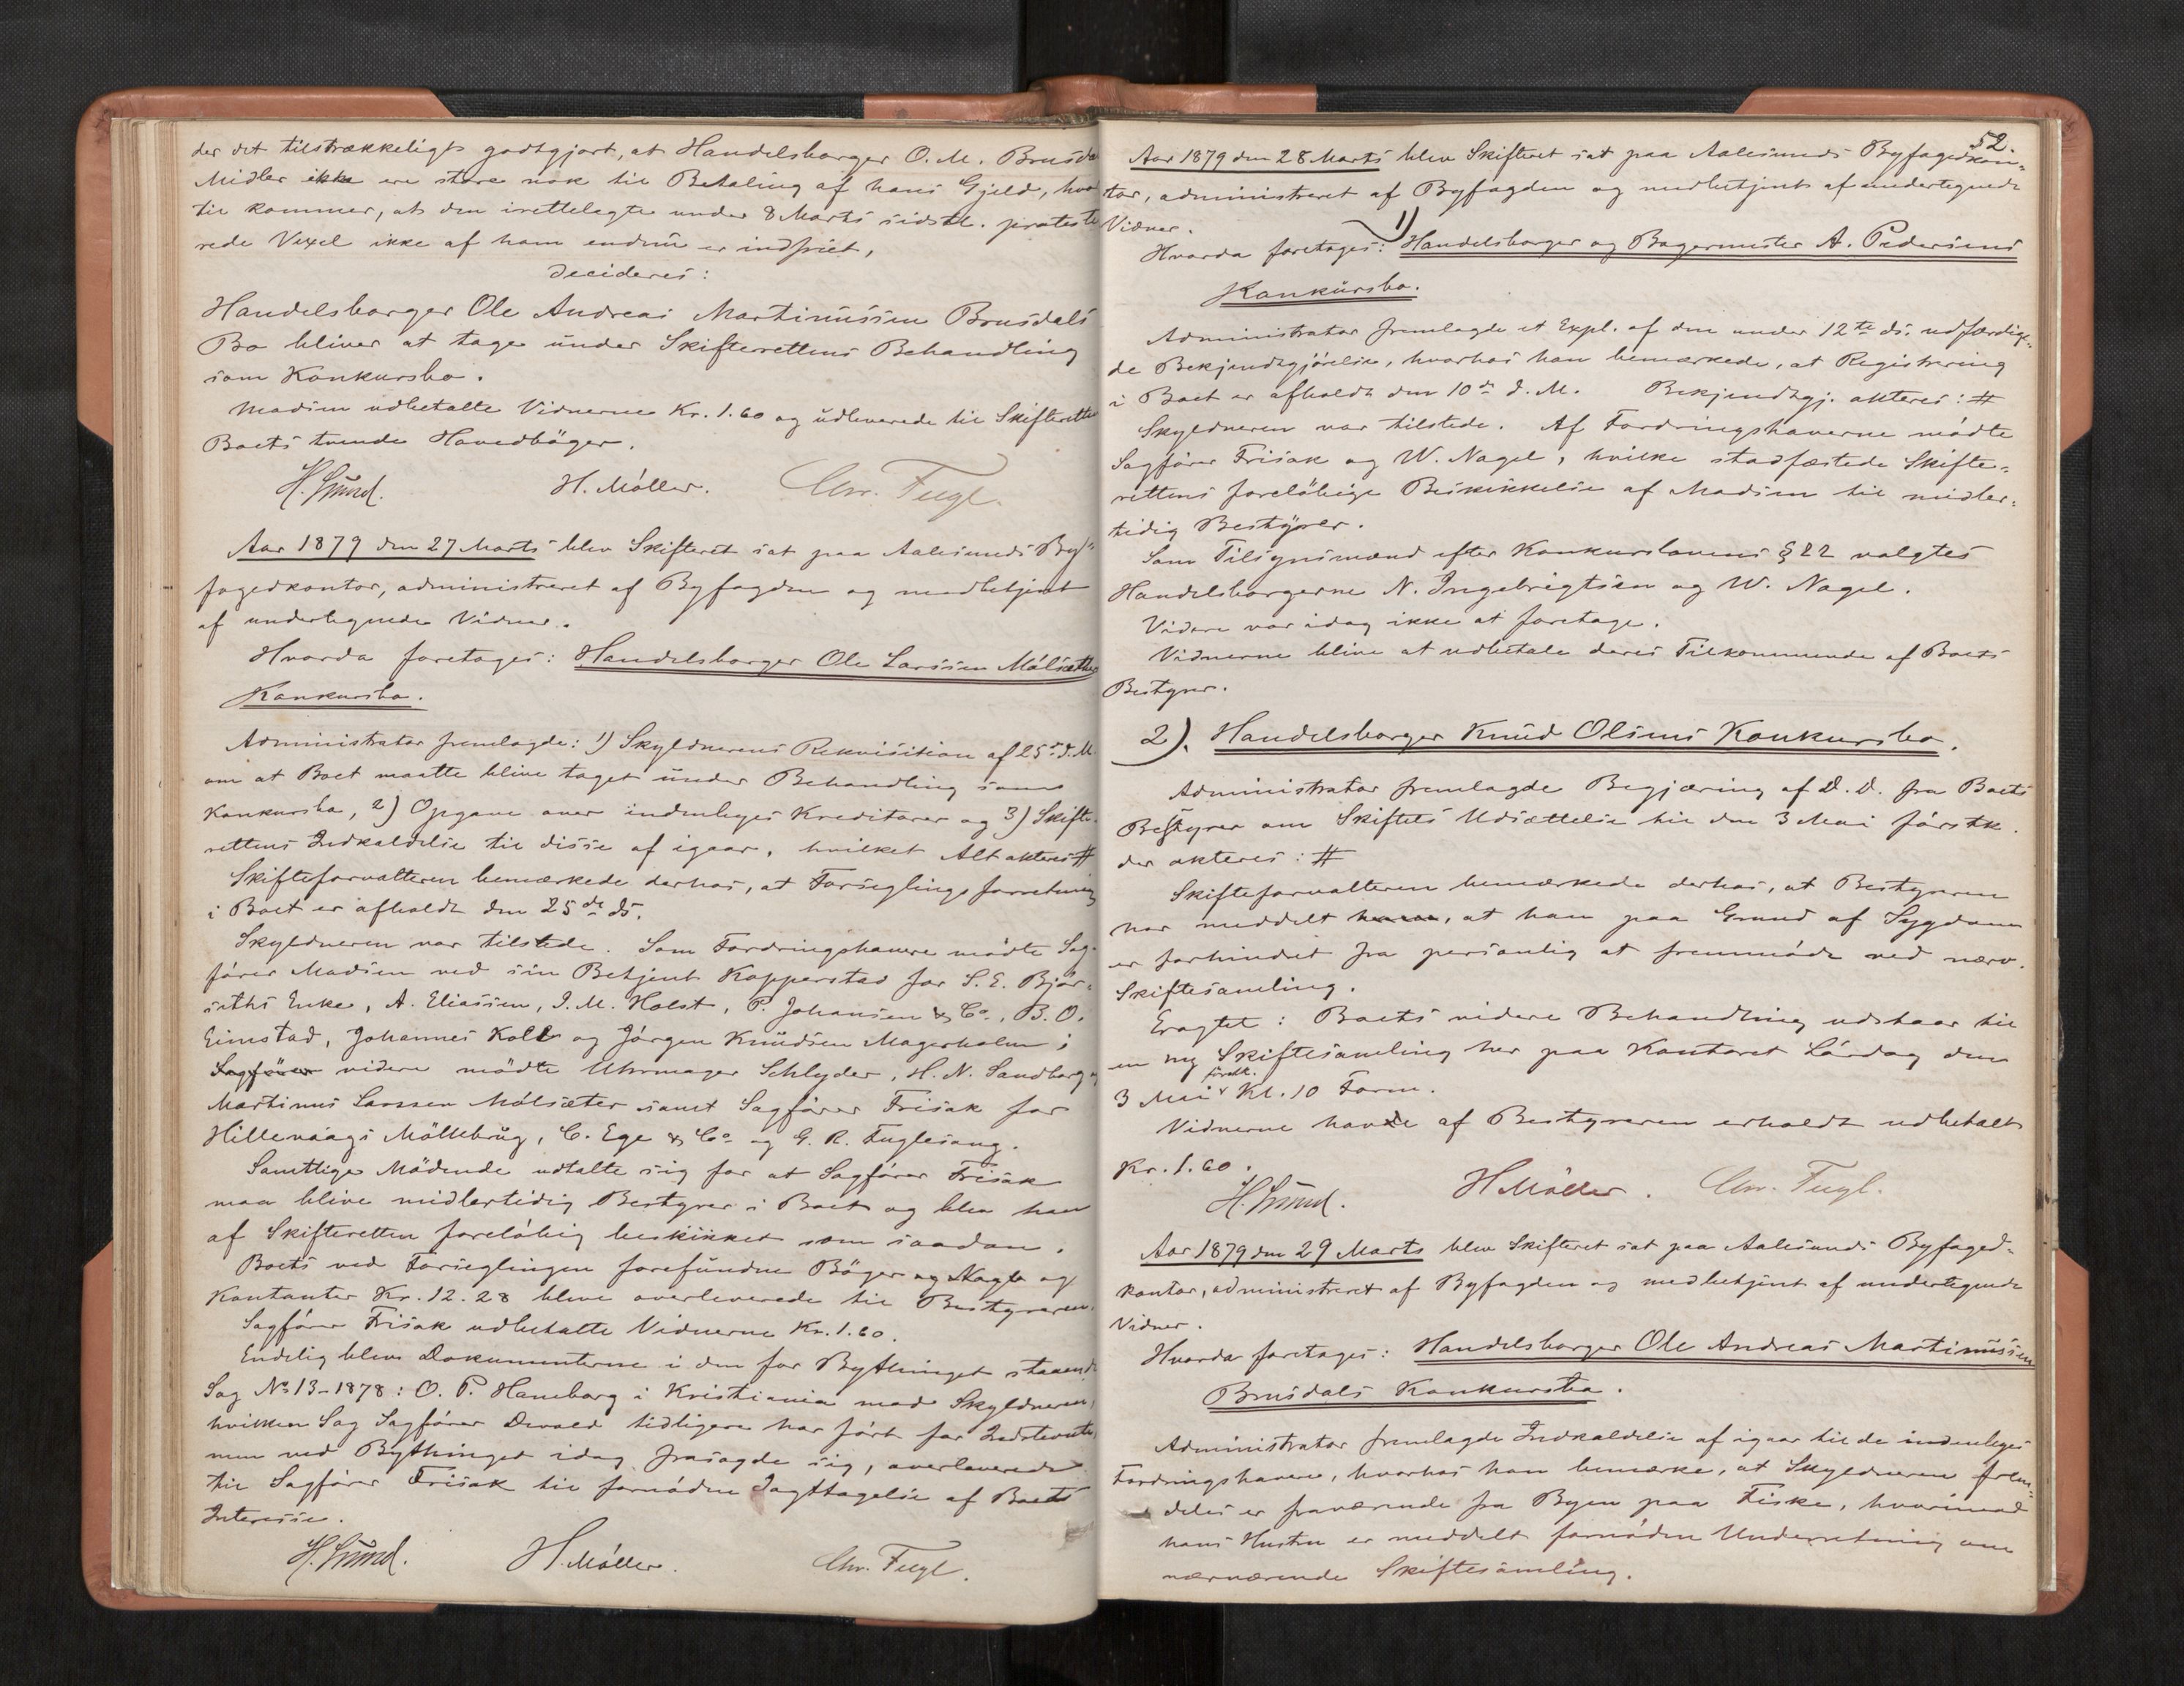 der det tilstrækkeligt godtgjort, at Handelsborger O. M. Brusdals
Midler ikke ere store nok til Betaling af hans Gjeld, hvor
til kommer, at den irettelagte under 8 Marts sidstl. proteste
rede Vexel ikke af ham endnu er indfriet,
decideres:
Handelsborger Ole Andreas Martinussen Brusdals
Bo bliver at tage under Skifterettens Behandling
som Konkursbo.
Madsen udbetalte Vidnerne Kr. 1.60 og udleverede til Skifteretten
Boets tvende Hovedbøger.
H. Lund. H. Møller. Chr. Fugl.
Aar 1879 den 27 Marts blev Skifteret sat paa Aalesunds By-
fogedkontor, administreret af Byfogden og medbetjent
af undertegnede Vidner.
Hvorda foretoges: Handelsborger Ole Larssen Mølsæthers
Konkursbo.
Administrator fremlagde: 1) Skyldnerens Rekvisition af 25de d. M.
om at Boet maatte blive taget under Behandling som
Konkursbo, 2) Opgave over indenbyes Kreditorer og 3) Skifte-
rettens Indkaldelse til disse af igaar, hvilket Alt akteres #
Skifteforvalteren bemærkede derhos, at Forseglingsforretning
i Boet er afholdt den 25de ds.
Skyldneren var tilstede. Som Fordringshavere mødte Sag-
fører Madsen ved sin Betjent Kopperstad for S. E. Bjør-
seths Enke, A. Eliassen, I. M. Holst, P. Johansen & Co., B. O.
Eimstad, Johannes Koll og Jørgen Knudsen Magerholm;
Sagfører videre mødte Uhrmager Schlyder, H. N. Sandborg og
Martinus Larssen Mølsæter samt Sagfører Frisak for
Hillevaags Møllebrug, C. Ege & Co. og G. R. Fuglesang.
Samtlige Mødende udtalte sig for at Sagfører Frisak
maa blive midlertidig Bestyrer i Boet og blev han
af Skifteretten foreløbig beskikket som saadan.
Boets ved Forseglingen forefundne Bøger og Nøgle og
Kontanter Kr. 12.28 bleve overleverede til Bestyreren.
Sagfører Frisak udbetalte Vidnerne Kr. 1.60.
Endelig bleve Dokumenterne i den for Bythinget staaende
Sag No 13-1878: O. P. Haneborg i Kristiania mod Skyldneren,
hvilken Sag Sagfører Devold tidligere har ført for Indstevnte,
men ved Bythinget idag frasagde sig, overleverede
til Sagfører Frisak til fornøden Iagttagelse af Boets
Interesse.
H. Lund. H. Møller. Chr. Fugl.
52.
Aar 1879 den 28 Marts blev Skifteret sat paa Aalesunds Byfogedkon-
tor, administreret af Byfogden og medbetjent af undertegnede
Vidner.
Hvorda foretoges: 1) Handelsborger og Bagermester A. Pedersens
Konkursbo.
Administrator fremlagde et Expl. af den under 12te ds. udfærdige-
de Bekjendtgjørelse, hvorhos han bemærkede, at Registrering
i Boet er afholdt den 10de d. M. Bekjendtgj. akteres: #
Skyldneren var tilstede. Af Fordringshaverne mødte
Sagfører Frisak og W. Nagel, hvilke stadfæstede Skifte-
rettens foreløbige Beskikkelse af Madsen til midler-
tidig Bestyrer.
Som Tilsynsmænd efter Konkurslovens § 22 valgtes
Handelsborgerne N. Ingebrigtsen og W. Nagel.
Videre var idag ikke at foretage.
Vidnerne blive at udbetale deres Tilkommende af Boets
Bestyrer.
2). Handelsborger Knud Olsens Konkursbo.
Administrator fremlagde Begjæring af D. D. fra Boets
Bestyrer om Skiftets Udsættelse til den 3 Mai førstk.
der akteres: #
Skifteforvalteren bemærkede derhos, at Bestyreren
har meddelt , at han paa Grund af Sygdom
er forhindret fra personlig at fremmøde ved nærv.
Skiftesamling.
Eragtet: Boets videre Behandling udstaar til
en ny Skiftesamling her paa Kontoret Lørdag den
3 Mai førstk. Kl. 10 Form.
Vidnerne havde af Bestyreren erholdt udbetalt
Kr. 1.60.
H. Lund. H Møller. Chr. Fugl.
Aar 1879 den 29 Marts blev Skifteret sat paa Aalesunds Byfoged-
kontor, administreret af Byfogden og medbetjent af undertegnede
Vidner.
Hvorda foretoges: Handelsborger Ole Andreas Martinussen
Brusdals Konkursbo.
Administrator fremlagde Indkaldelse af igaar til de indenbyes
Fordringshavere, hvorhos han bemærke, at Skyldneren frem-
deles er fraværende fra Byen paa Fiske, hvorimod
hans Hustru er meddelt fornøden Underretning om
nærværende Skiftesamling.